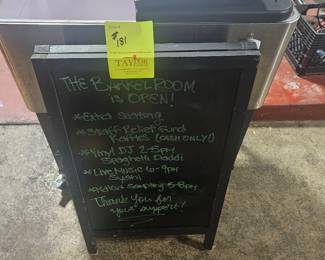 #181
TAYLOR
THE BARRELROOM
IS OPEN!
*Extra Seating
*Staff-Relief Fund
Raffles (CASH ONLY!)
*Vinyl DJ 2-5pm
Spaghetti Daddi
*Live Music 6-9pm
Sushi
Sampling 5-8pm
Thank you for
your support!